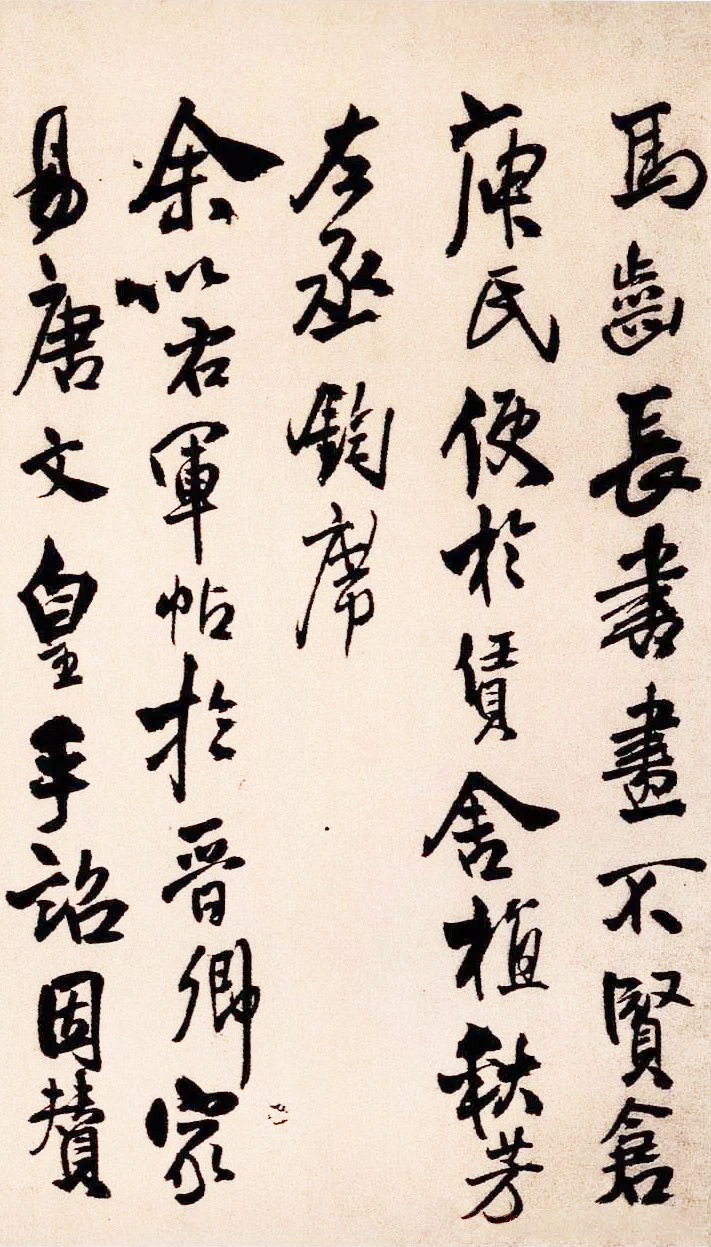 馬齒長書畫不賢倉
庾氏便於賃舍植秋芳
左丞鈞席
余以右軍帖於晋卿家
易唐文皇手詔因賛